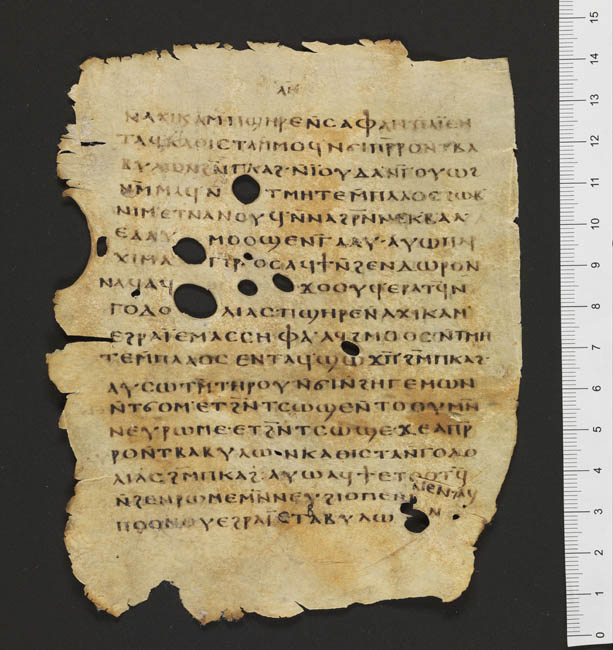 ⲛⲁⲭⲓⲕⲁⲙⲡϣⲏⲣⲉⲛ̄ⲥⲁⲫⲁⲛⲡⲁⲓ̈ⲉⲛ
ⲧⲁϥⲕⲁⲑⲓⲥⲧⲁⲙⲙⲟϥⲛ̄ϭⲓⲡⲣ̄ⲣⲟⲛ̄ⲧⲃⲁ
ⲃⲩⲗⲱⲛϩⲙ̄ⲡⲕⲁϩⲛ̄ⲓⲟⲩⲇⲁⲛⲅ̄ⲟⲩⲱϩ
ⲛⲙ̄ⲙⲁϥϩⲛ̄ ⲧⲙⲏⲧⲉⲙ̄ⲡⲗⲁⲟⲥϩⲱⲃ
ⲛⲓⲙⲉⲧⲛⲁⲛⲟⲩϥⲛ̄ⲛⲁϩⲣⲛ̄ⲛⲉⲕⲃⲁⲗ
ⲉⲁⲁⲩ ⲙⲟⲟϣⲉⲛⲅ̄ⲁⲁⲩ·ⲁⲩⲱⲡⲛ
ⲭⲓⲙⲁ ⲟⲥⲁϥϯⲛ̄ϩⲉⲛⲇⲱⲣⲟⲛ
ⲛⲁϥⲁϥ ϫⲟⲟⲩϥⲉⲣⲁⲧϥⲛ̄
ⲅⲟⲇⲟ ⲗⲓⲁⲥⲡϣⲏⲣⲉⲛ̄ⲁⲭⲓⲕⲁⲙ
ⲉϩⲣⲁⲓ̈ⲉⲙⲁⲥⲥⲏⲫⲁ·ⲁϥϩⲙⲟⲟⲥϩⲛ̄ⲧⲙⲏ
ⲧⲉⲙ̄ⲡⲗⲁⲟⲥⲉⲛⲧⲁϥϣⲱϫⲡ̄ϩⲙ̄ⲡⲕⲁϩ·
ⲁⲩⲥⲱⲧⲙ̄ⲧⲏⲣⲟⲩⲛ̄ϭⲓⲛϩⲏⲅⲉⲙⲱⲛ
ⲛ̄ⲧϭⲟⲙⲉⲧϩⲛ̄ⲧⲥⲱϣⲉⲛ̄ⲧⲟⲟⲩⲙⲛ̄
ⲛⲉⲩⲣⲱⲙⲉⲉⲧϩⲛ̄ⲧⲥⲱϣⲉϫⲉⲁⲡⲣ̄
ⲣⲟⲛ̄ⲧⲃⲁⲃⲩⲗⲱⲛⲕⲁⲑⲓⲥⲧⲁⲛ̄ⲅⲟⲇⲟ
ⲗⲓⲁⲥϩⲙ̄ⲡⲕⲁϩ·ⲁⲩⲱⲁϥϯⲉⲧⲟⲟⲧϥ̄
ⲛ̄ϩⲉⲛⲣⲱⲙⲉⲙⲛ̄ⲛⲉⲩϩⲓⲟⲙⲉ ⲛⲁⲓ̈ⲉⲛⲧⲁϥ
ⲡⲟⲟⲛⲟⲩⲉϩⲣⲁⲓ̈ⲉⲧⲃⲁⲃⲩⲗⲱ ⲛ
15
14
13
12
11
10
9
8
7
6
5
4
3
2
1
0